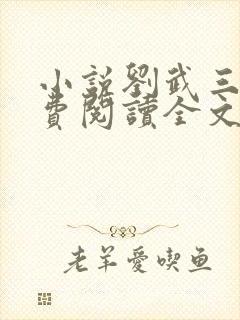 小説劉武三
費閱讀全文
老羊愛喫鱼